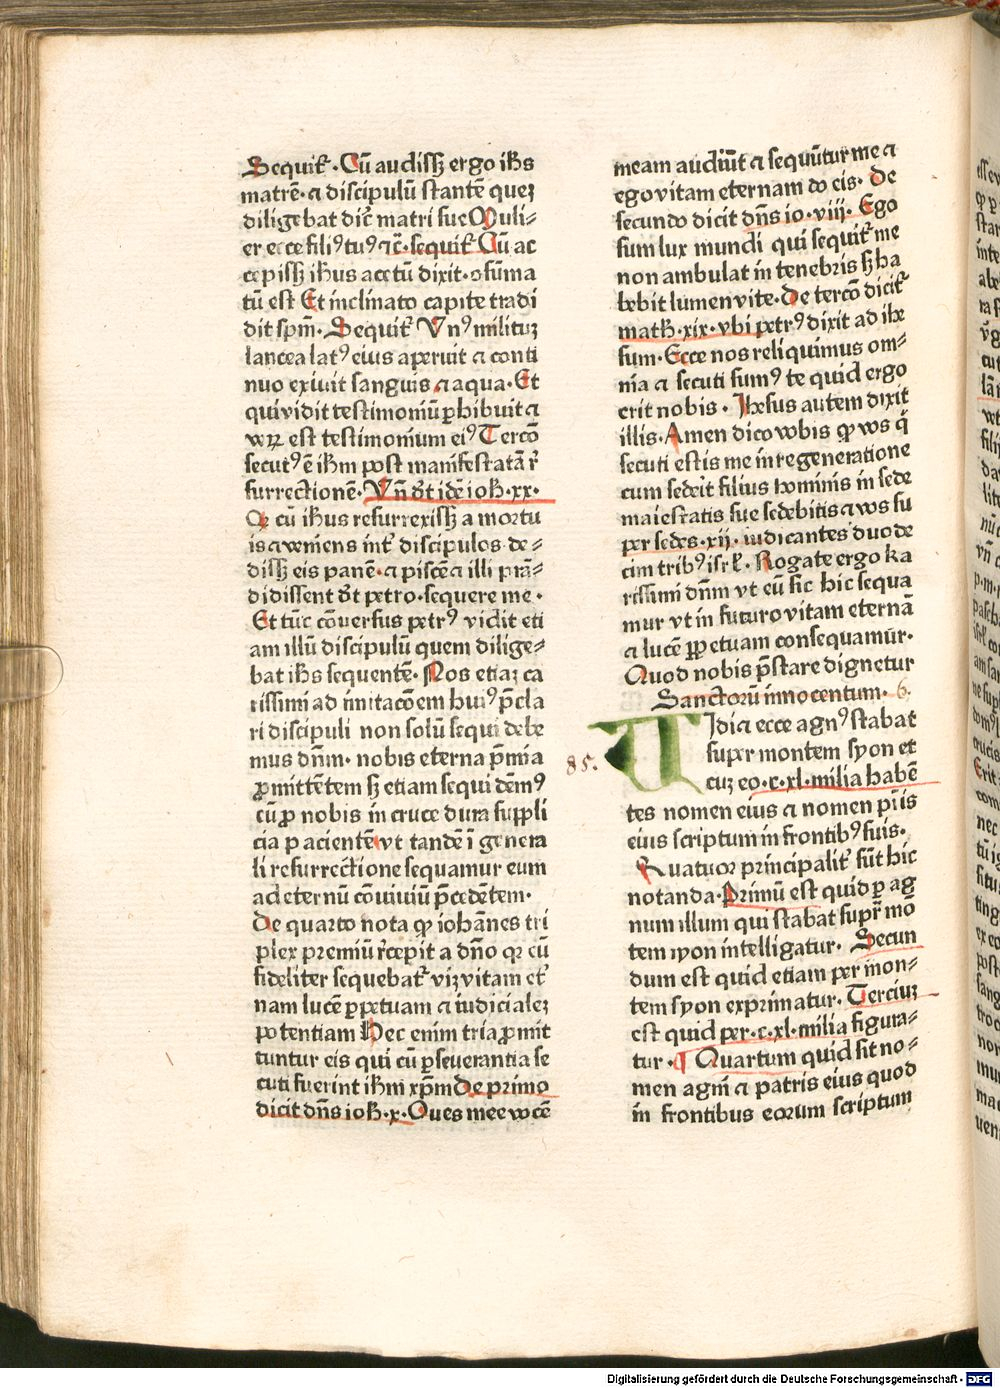 Sequit᷑ · Cū audissꝫ ergo ih̄s
matrē · ⁊ discipulū stantē queꝫ
diligebat dic̄ matri sue Muli⸗
er ecce filiꝰ tuꝰ ⁊c̄ · sequit᷑ Cū ac
cepissꝫ ih̄us acetū dixit · ↄsūma
tū est Et inclinato capite tradi
dit sp̄m · Sequit᷑ Vnꝰ militūꝫ
lancea latꝰ eius aperuit ⁊ conti
nuo exiuit sanguis ⁊ aqua · Et
qui vidit testimoniū ꝑhibuit ⁊
veꝝ est testimonium eiꝰ Tercō
secutꝰ ē ih̄m post manifestatā r̄
surrectionē · Vn̄ d̄t idē ioh̄ · xx ·
Q cū ih̄us resurrexissꝫ a mortu
is ⁊ veniens int᷑ discipulos de⸗
dissꝫ eis panē · ⁊ piscē ⁊ illi prā⸗
didissent d̄t petro · sequere me ·
Et tūc cōuersus petrꝰ vidit eti
am illū discipulū quem dilige⸗
bat ih̄s sequentē · Nos etiaꝫ ca
rissimi ad imitacōem huiꝰ p̄cla
ri discipuli non solū sequi debe
mus dn̄m · nobis eterna p̄mia
ꝓmittētem sꝫ etiam sequi dēmꝰ
cū ꝓ nobis in cruce dura suppli
cia pacientē vt tandē ī genera
li resurrectione sequamur eum
ad eternū cōuiuiū p̄cedētem ·
De quarto nota ꝙ iohānes tri
plex premiū r̄cepit a dn̄o qꝛ cū
fideliter sequebat᷑ viꝫ vitam et᷑
nam lucē ꝑpetuam ⁊ iudicialeꝫ
potentiam Hec enim tria ꝓmit
tuntur eis qui cū ꝑseuerantia se
cuti fuerint ih̄m xp̄m De primo
dicit dn̄s ioh̄ · x · Oues mee vocē
meam audiūt ⁊ sequūtur me ⁊
ego vitam eternam do eis · De
secundo dicit dn̄s io · viii · Ego
sum lux mundi qui sequit᷑ me
non ambulat in tenebris sꝫ ha
bebit lumen vite · De tercō dicit᷑
math̄ · xix · vbi petrꝰ dixit ad ihe
sum · Ecce nos reliquimus om⸗
nia ⁊ secuti sumꝰ te quid ergo
erit nobis · Ihesus autem dixit
illis · Amen dico vobis ꝙ vos q̄
secuti estis me in regeneratione
cum sederit filius hominis in sede
maiestatis sue sedebitis ⁊ vos su
per sedes · xii · iudicantes duode
cim tribꝰ isrl̄ · Rogate ergo ka
rissimi dn̄m vt eū sic hic sequa
mur vt in futuro vitam eternā
⁊ lucē ꝑpetuam consequamur ·
Quod nobis p̄stare dignetur
Sanctorū innocentum · 6.
85.
VIdi ⁊ ecce agnꝰ stabat
super montem syon et
cuꝫ eo · c · xl · milia habē
tes nomen eius ⁊ nomen pr̄is
eius scriptum in frontibꝰ suis ·
Quatuor principalit᷑ sūt hic
notanda · Primū est quid ꝑ ag
num illum qui stabat supr̄ mō
tem syon intelligatur · Secun
dum est quid etiam per mon⸗
tem syon exprimatur · Terciuꝫ
est quid per · c · xl · milia figura⸗
tur · ¶ Quartum quid sit no⸗
men agni ⁊ patris eius quod
in frontibus eorum scriptum
Digitalisierung gefördert durch die Deutsche Forschungsgemeinschaft - DFG